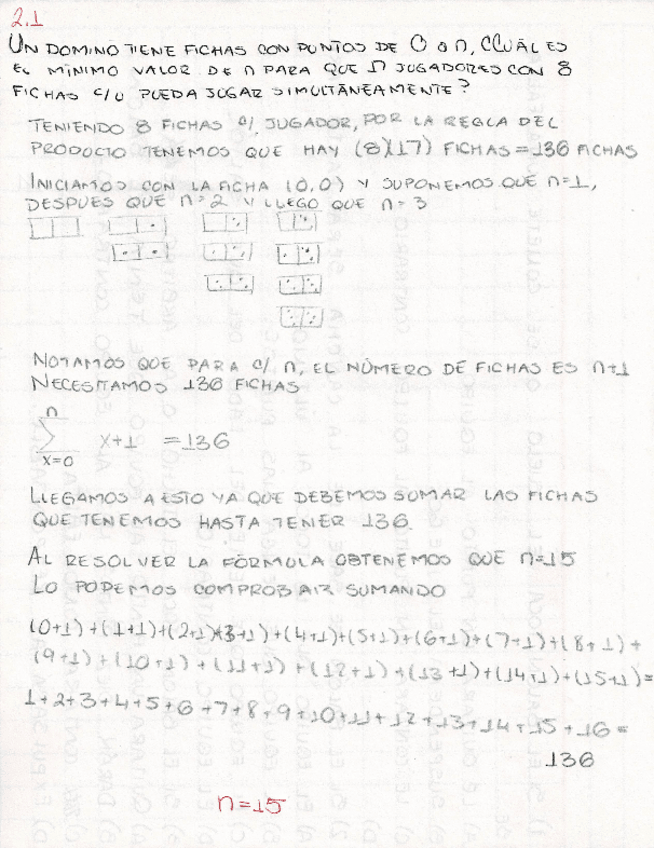 2.1
UN DOMINO TIENE FICHAS CON PUNTOS DE 0 a n, ¿CUÁL ES
EL MÍNIMO VALOR DE n PARA QUE 17 JUGADORES CON 8
FICHAS c/u PUEDA JUGAR SIMULTÁNEAMENTE?
TENIENDO 8 FICHAS c/ JUGADOR, POR LA REGLA DEL
PRODUCTO TENEMOS QUE HAY (8)(17) FICHAS = 136 FICHAS
INICIAMOS CON LA FICHA (0,0) Y SUPONEMOS QUE n=1,
DESPUES QUE n=2 Y LLEGO QUE n=3
NOTAMOS QUE PARA c/ n, EL NÚMERO DE FICHAS ES n+1
NECESITAMOS 136 FICHAS
n
∑ x+1 = 136
x=0
LLEGAMOS A ESTO YA QUE DEBEMOS SUMAR LAS FICHAS
QUE TENEMOS HASTA TENER 136.
AL RESOLVER LA FÓRMULA OBTENEMOS QUE n=15
LO PODEMOS COMPROBAR SUMANDO
(0+1)+(1+1)+(2+1)+(3+1)+(4+1)+(5+1)+(6+1)+(7+1)+(8+1)+
(9+1)+(10+1)+(11+1)+(12+1)+(13+1)+(14+1)+(15+1)=
1+2+3+4+5+6+7+8+9+10+11+12+13+14+15+16=
136
n=15